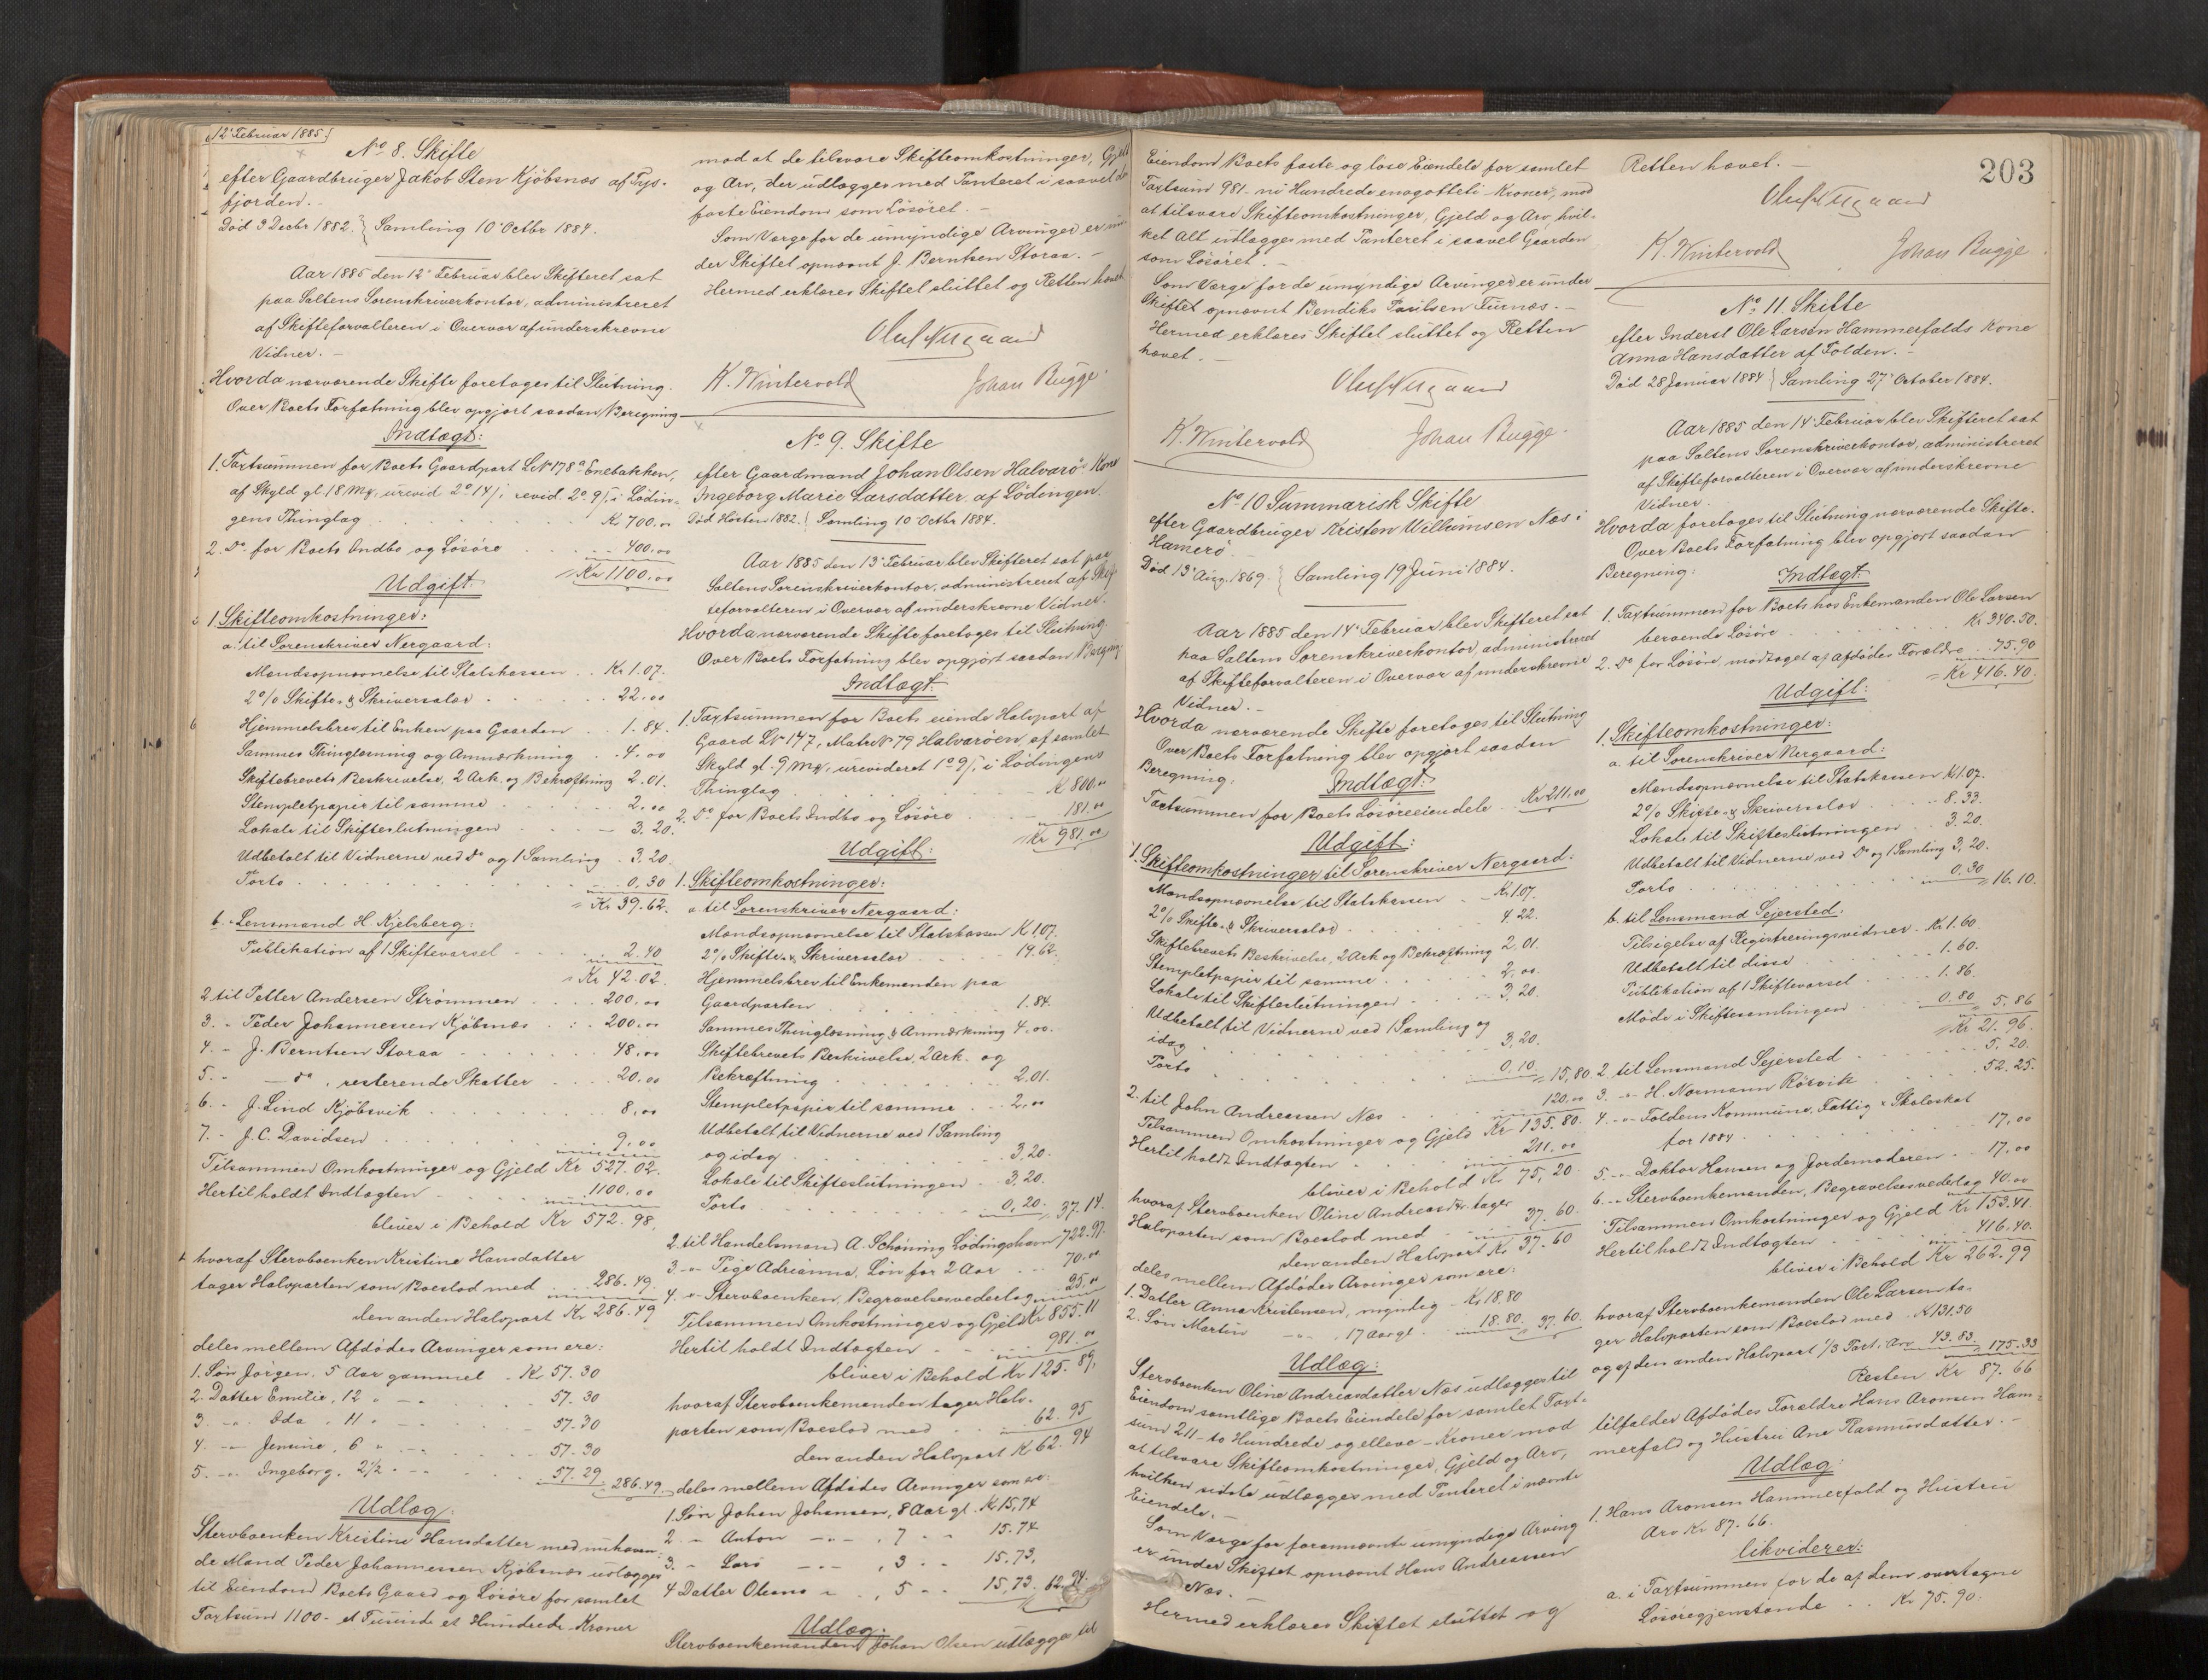 12' Februar 1885.
No 8. Skifte
efter Gaardbruger Jakob Sten Kjöbsnæs af Tys-
fjorden.
Död 3 Decbr 1882. } Samling 10' Octbr 1884.
Aar 1885 den 12' Februar blev Skifteret sat
paa Saltens Sorenskriverkontor, administreret
af Skifteforvalteren i Overvær af underskrevne
Vidner. –
Hvorda nærværende Skifte foretoges til Slutning.
Over Boets Forfatning blev opgjort saadan Beregning
Indtægt:
1. Taxtsummen for Boets Gaardpart LN 178a Enebakken,
af Skyld gl. 18 Mk, urevid 2º 14/, revid. 2º. 9/, i Lödin-
gens Thinglag Kr 700.00
2. Do for Boets Indbo og Lösöre 400.00
Kr 1100.00
Udgift:
1. Skifteomkostninger:
a. til Sorenskriver Nergaard:
Mændsopnævnelse til Statskassen Kr 1.07.
2% Skifte- & Skriversalær 22.00
Hjemmelsbrev til Enken paa Gaarden 1.84.
Sammes Thinglæsning og Anmærkning 4.00
Skiftebrevets Beskrivelse, 2 Ark. og Bekræftning 2.01.
Stempletpapir til samme 2.00
Lokale til Skifteslutningen 3.20.
Udbetalt til Vidnerne ved Do og 1 Samling 3.20.
Porto 0,30
Kr 39.62.
b. " Lensmand H. Kjelsberg:
Publikation af 1 Skiftevarsel 2.40
Kr 42.02.
2 til Petter Andersen Strömmen 200.00
3. " Peder Johannessen Kjöbsnæs 200.00
4. " J. Berntsen Storaa 48.00
5. " – do –, resterende Skatter 20.00
6. " J. Lind Kjöbsvik 8.00
7. " J. C. Davidsen 9.00
Tilsammen Omkostninger og Gjeld Kr 527.02.
Hertil holdt Indtægten 1100.00
bliver i Behold Kr 572.98.
hvoraf Stervboenken Kristine Hansdatter
tager Halvparten som Boeslod med 286.49.
den anden Halvpart Kr 286.49
deles mellem Afdödes Arvinger som ere:
1. Sön Jörgen, 5 Aar gammel Kr 57.30
2. Datter Emilie, 12 " 57.30
3. " Ida " 11 " 57.30
4. " Jensine, 6 " 57.30
5. " Ingeborg, 2½ " 57.29 286.49.
Udlæg:
Stervboenken Kristine Hansdatter med nuhaven-
de Mand Peder Johannessen Kjöbsnæs udlægges
til Eiendom Boets Gaard og Lösöre for samlet
Taxtsum 1100 – et Tusinde et Hundrede – Kroner
mod at de tilsvare Skifteomkostninger, Gjeld
og Arv, der udlægges med Panteret i saavel de
faste Eiendom som Lösöret. –
Som Værge for de umyndige Arvinger er un-
der Skiftet opnævnt J. Berntsen Storaa. –
Hermed erklæres Skiftet sluttet og Retten hævet
Oluf Nergaard
K. Wintervold Johan Bugge
No 9. Skifte
efter Gaardmand Johan Olsen Halvarö's Kone
Ingeborg Marie Larsdatter af Lödingen.
Död Hösten 1882. } Samling 10 Octbr 1884.
Aar 1885 den 13' Februar blev Skifteret sat paa
Saltens Sorenskriverkontor, administreret af Skif-
teforvalteren i Overvær af underskrevne Vidner.
Hvorda nærværende Skifte foretoges til Slutning.
Over Boets Forfatning blev opgjort saadan Beregning:
Indtægt:
1. Taxtsummen for Boets eiende Halvpart af
Gaard LN 147, Matr N 79 Halvaröen, af samlet
Skyld gl. 9 Mk, urevideret 1º 9/, i Lödingens
Thinglag Kr 800.00
2. Do for Boets Indbo og Lösöre 181.00
Kr 981.00
Udgift:
1. Skifteomkostninger:
a. til Sorenskriver Nergaard:
Mændsopnævnelse til Statskassen Kr 1.07.
2% Skifte- & Skriversalær 19.62.
Hjemmelsbrev til Enkemanden paa
Gaardparten 1.84.
Sammes Thinglæsning & Anmærkning 4.00.
Skiftebrevets Beskrivelse, 2 Ark. og
Bekræftning 2.01.
Stempletpapir til samme 2.00
Udbetalt til Vidnerne ved 1 Samling
og idag 3.20.
Lokale til Skifteslutningen 3.20.
Porto 0,20. 37.14.
2. til Handelsmand A. Schöning Lödingshavn 722.97.
3 " Pige Adrianna, Lön for 2 Aar 70.00
4. " Stervboenken, Begravelsesvederlag 25.00
Tilsammen Omkostninger og Gjeld Kr 855.11
Hertil holdt Indtægten 981.00
bliver i Behold Kr 125.89,
hvoraf Stervboenkemanden tager Halv-
parten som Boeslod med 62.95
den anden Halvpart Kr 62.94
deles mellem Afdödes Arvinger som er:
1. Sön Johan Johansen, 8 Aar gl. Kr 15.74
2 " Anton – " – " 7 " 15.74
3. " Lars – " – " 3 " 15.73,
4 Datter Oleana " " 5 " 15,73. 62,94.
Udlæg:
Stervboenkemanden Johan Olsen udlægges til
203
Eiendom Boets faste og löse Eiendele for samlet
Taxtsum 981 – ni Hundrede enogotteti – Kroner, mod
at tilsvare Skifteomkostninger, Gjeld og Arv, hvil-
ket Alt udlægges med Panteret i saavel Gaarden
som Lösöret. –
Som Værge for de umyndige Arvinger er under
Skiftet opnævnt Bendiks Paulsen Furnæs. –
Hermed erklæres Skiftet sluttet og Retten
hævet. –
Oluf Nergaard
K. Wintervold Johan Bugge.
No 10 Summarisk Skifte
efter Gaardbruger Kristen Willumsen Næs i
Hamerö.
Död 13' Aug. 1869. } Samling 19 Juni 1884.
Aar 1885 den 14' Februar blev Skifteret sat
paa Saltens Sorenskriverkontor, administreret
af Skifteforvalteren i Overvær af underskrevne
Vidner. –
Hvorda nærværende Skifte foretoges til Slutning
Over Boets Forfatning blev opgjort saadan
Beregning:
Indtægt:
Taxtsummen for Boets Lösöreeiendele Kr 211.00
Udgift:
1. Skifteomkostninger til Sorenskriver Nergaard:
Mændsopnævnelse til Statskassen Kr 1.07.
2% Skifte- & Skriversalær 4.22.
Skiftebrevets Beskrivelse, 2 Ark og Bekræftning 2,01.
Stempletpapir til samme 2,00.
Lokale til Skifteslutningen 3,20.
Udbetalt til Vidnerne ved 1 Samling og
idag 3,20.
Porto 0,10. 15,80.
2. til John Andreassen Næs 120.00
Tilsammen Omkostninger og Gjeld Kr 135.80.
Hertil holdt Indtægten 211.00
bliver i Behold Kr 75,20
hvoraf Stervboenken Oline Andreasdtr. tager
Halvparten som Boeslod med 37.60.
den anden Halvpart Kr 37.60
deles mellem Afdödes Arvinger som ere:
1. Datter Anna Kristensen, myndig Kr 18.80
2. Sön Martin – " – , 17 Aar gl. 18.80. 37.60.
Udlæg:
Stervboenken Oline Andreasdatter Næs udlægges til
Eiendom samtlige Boets Eiendele for samlet Taxt-
sum 211 – to Hundrede og elleve – Kroner mod
at tilsvare Skifteomkostninger, Gjeld og Arv,
hvilken sidste udlægges med Panteret i nævnte
Eiendele. –
Som Værge for forannævnte umyndige Arving
er under Skiftet opnævnt Hans Andreassen
Næs.
Hermed erklæres Skiftet sluttet og
Retten hævet. –
Oluf Nergaard
K. Wintervold Johan Bugge
No 11. Skifte
efter Inderst Ole Larsen Hammerfalds Kone
Anna Hansdatter af Folden. –
Död 28 Januar 1884 } Samling 27' October 1884.
Aar 1885 den 14' Februar blev Skifteret sat
paa Saltens Sorenskriverkontor, administreret
af Skifteforvalteren i Overvær af underskrevne
Vidner.
Hvorda foretoges til Slutning nærværende Skifte.
Over Boets Forfatning blev opgjort saadan
Beregning:
Indtægt:
1. Taxtsummen for Boets hos Enkemanden Ole Larsen
beroende Lösöre Kr 340.50.
2. Do for Lösöre, modtaget af Afdödes Forældre 75.90
Kr 416.40.
Udgift:
1. Skifteomkostninger:
a. til Sorenskriver Nergaard:
Mændsopnævnelse til Statskassen Kr 1.07.
2% Skifte- & Skriversalær 8.33.
Lokale til Skifteslutningen 3.20.
Udbetalt til Vidnerne ved Do og 1 Samling 3,20.
Porto 0,30 16.10.
b. til Lensmand Sejersted:
Tilsigelse af Registreringsvidner Kr 1.60
Udbetalt til disse 1.60.
Publikation af 1 Skiftevarsel 1.86.
Möde i Skiftesamlingen 0.80 5,86
Kr 21.96.
2 til Lensmand Sejersted 5.20.
3. " H. Normann Rösvik 52.25.
4. " Foldens Kommune, Fattig- & Skoleskat
for 1884 17,00
5. " Doktor Hansen og Jordemoderen 17,00
6. " Stervboenkemanden, Begravelsesvederlag 40.00
Tilsammen Omkostninger og Gjeld Kr 153.41
Hertil holdt Indtægten 416.40.
bliver i Behold Kr 262.99
hvoraf Stervboenkemanden Ole Larsen ta-
ger Halvparten som Boeslod med Kr 131.50
og af den anden Halvpart 1/3 Part i Arv 43.83. 175.33
Resten Kr 87.66
tilfalder Afdödes Forældre Hans Aronsen Ham-
merfald og Hustru Ane Rasmusdatter. –
Udlæg:
1. Hans Aronsen Hammerfald og Hustru
Arv Kr 87.66.
likviderer:
a. i Taxtsummen for de af dem overtagne
Lösöregjenstande Kr 75.90.